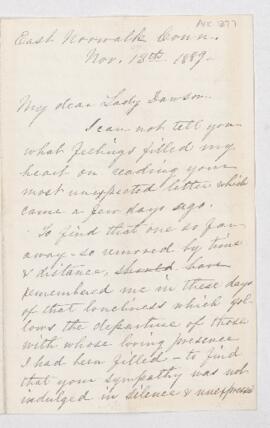 East Norwalk Conn.
Nov. 18th 1889.
My dear Lady Dawson.
I can not tell you
what feelings filled my
heart on reading your
most unexpected letter which
came a few days ago.
To find that one so far
away - so removed by time
& distance, should have
remembered me in these days
of that loneliness which fol-
lows the departure of those
with whose loving presence
I had been filled - to find
that your sympathy was not
indulged in silence & unexpressed